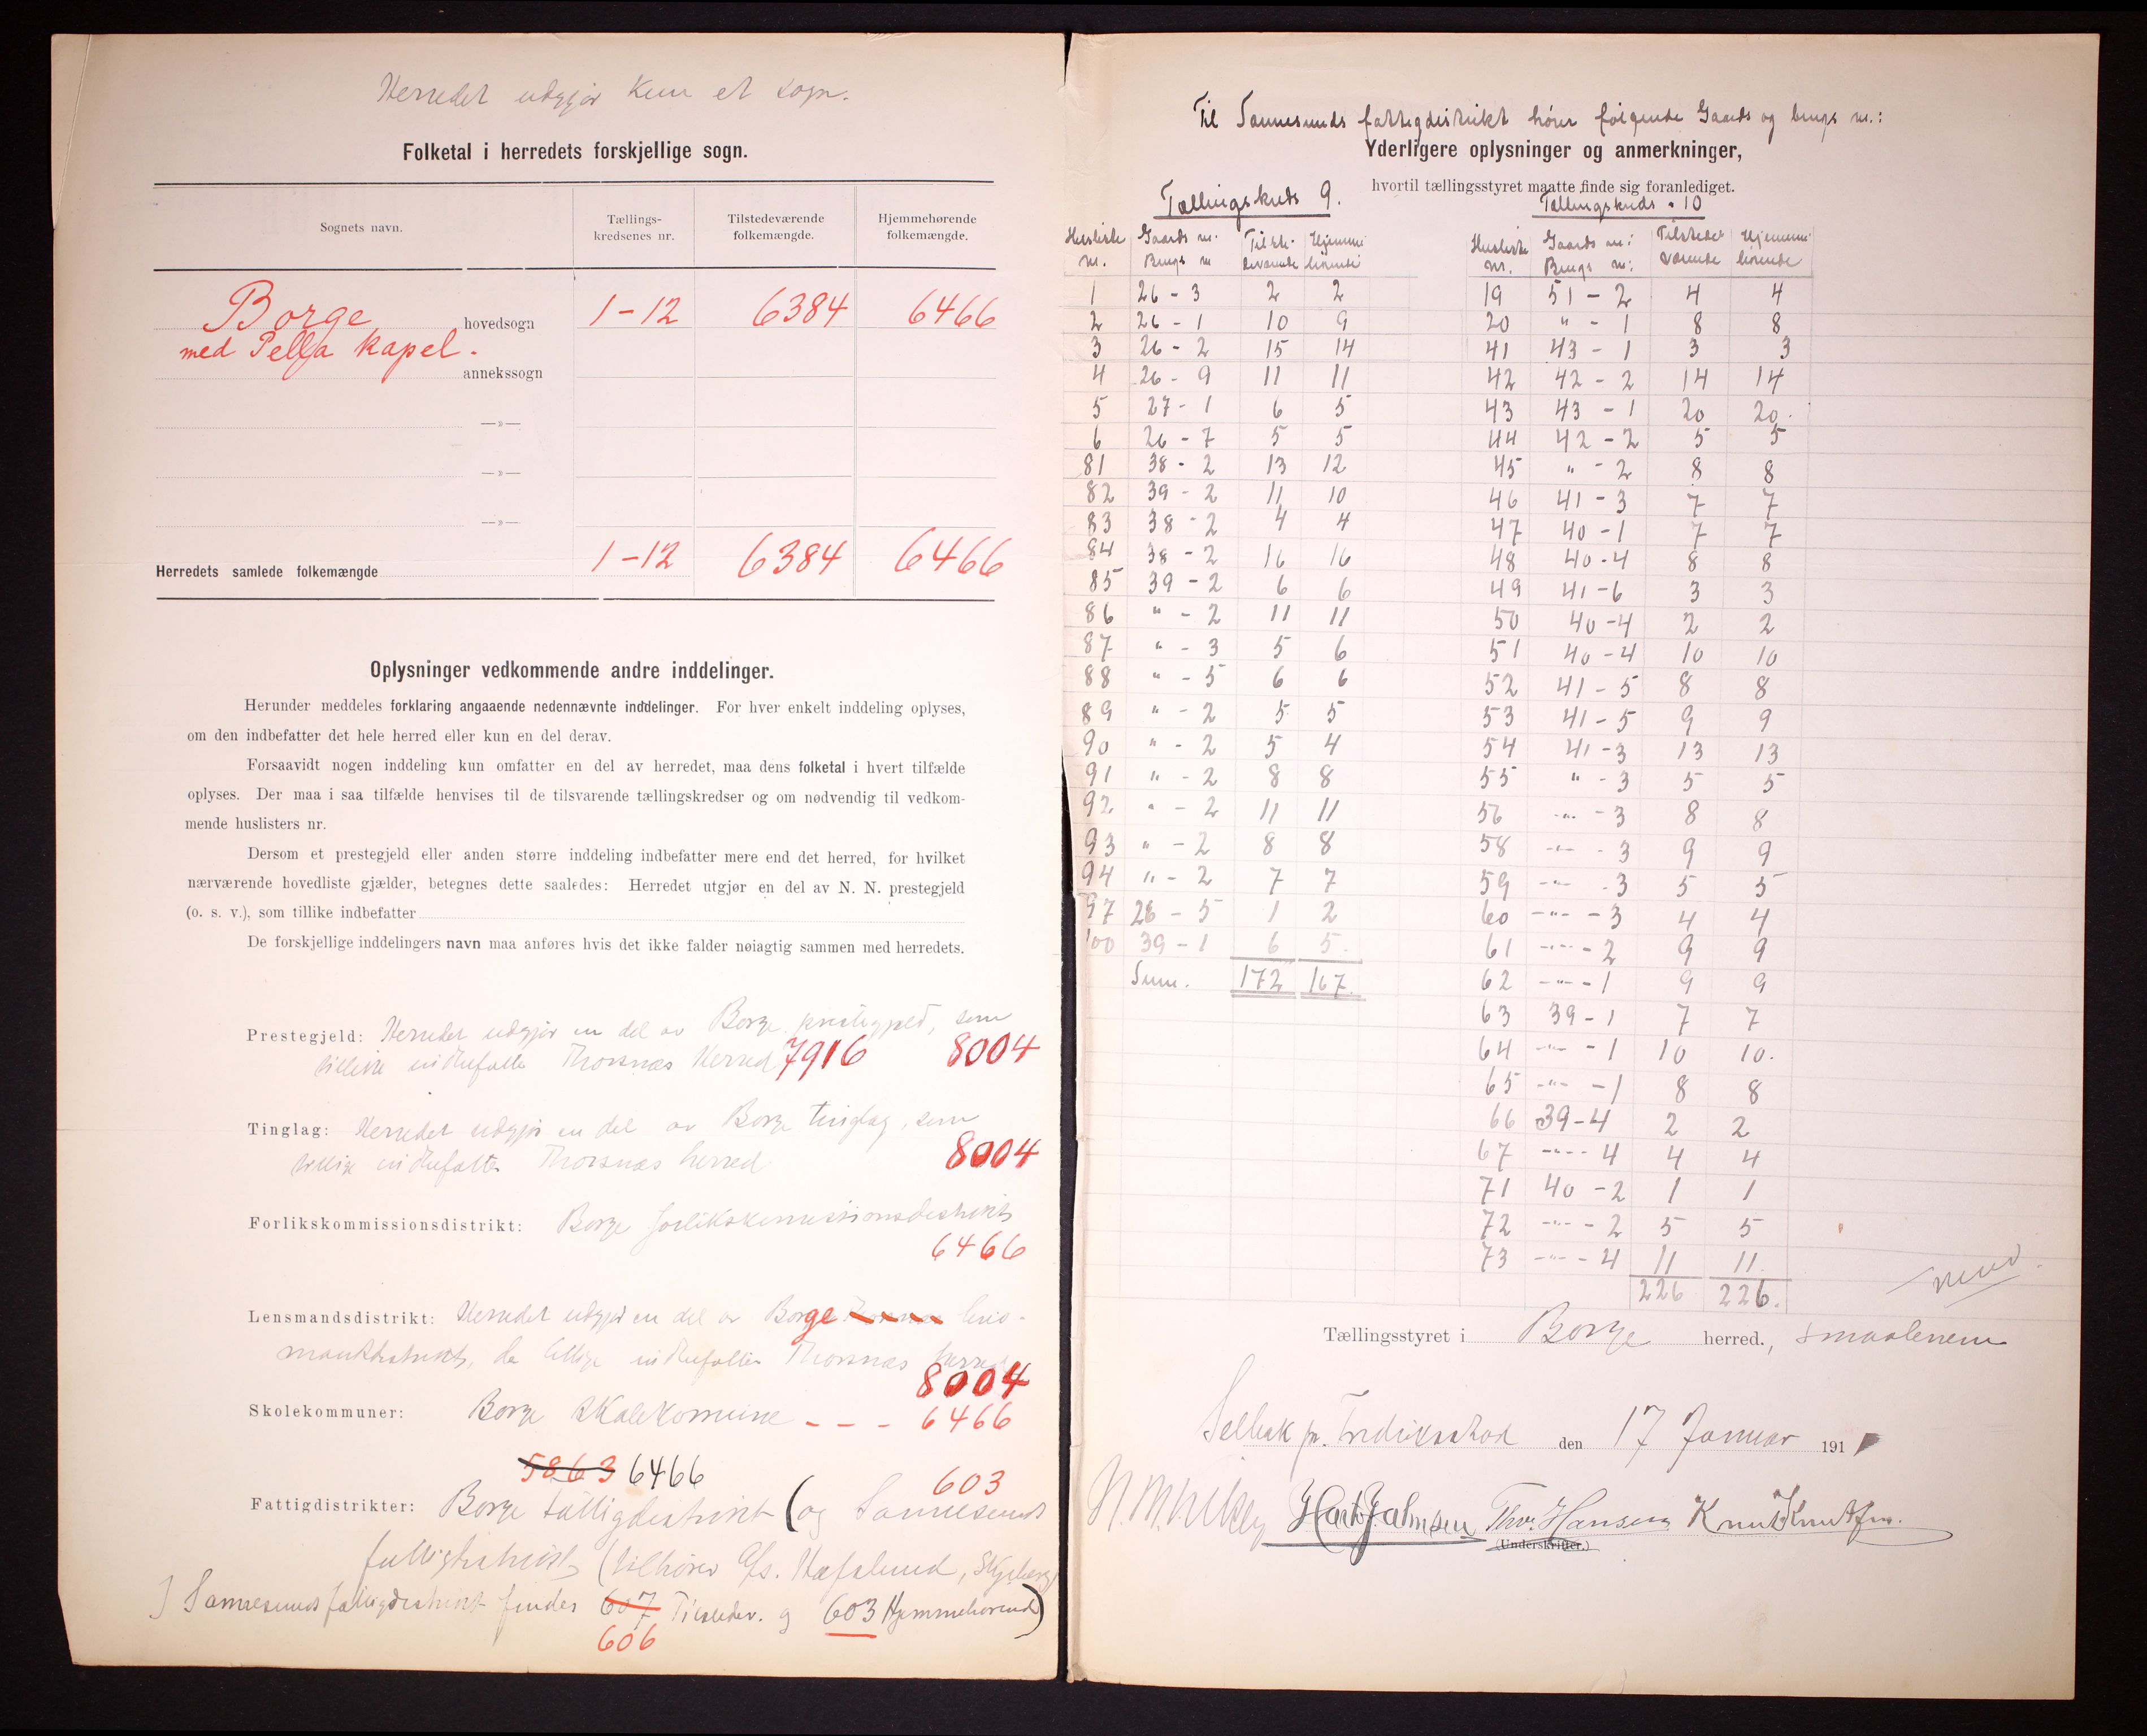 Herredet udgjør kun et sogn.
Folketal i herredets forskjellige sogn.
Sognets navn. Tællings-kredsenes nr. Tilstedeværende folkemængde. Hjemmehørende folkemængde.
Borge hovedsogn 1-12 6384 6466
med Sellja kapel.
annekssogn
—»—
—»—
—»—
Herredets samlede folkemængde 1-12 6384 6466
Oplysninger vedkommende andre inddelinger.
Herunder meddeles forklaring angaaende nedennævnte inddelinger. For hver enkelt inddeling oplyses,
om den indbefatter det hele herred eller kun en del derav.
Forsaavidt nogen inddeling kun omfatter en del av herredet, maa dens folketal i hvert tilfælde
oplyses. Der maa i saa tilfælde henvises til de tilsvarende tællingskredser og om nødvendig til vedkom-
mende huslisters nr.
Dersom et prestegjeld eller anden større inddeling indbefatter mere end det herred, for hvilket
nærværende hovedliste gjælder, betegnes dette saaledes: Herredet utgjør en del av N. N. prestegjeld
(o. s. v.), som tillike indbefatter
De forskjellige inddelingers navn maa anføres hvis det ikke falder nøiagtig sammen med herredets.
Prestegjeld: Herredet udgjør en del av Borge prestegjeld, som
tillike indbefatter Thorsnæs Herred 7916 8004
Tinglag: Herredet udgjør en del av Borge tinglag, som
tillige indbefatter Thorsnæs herred 8004
Forlikskommissionsdistrikt: Borge forlikskommissionsdistrikt
6466
Lensmandsdistrikt: Herredet udgjør en del av Borge lens-
mandsdistrikt, da tillige indbefatter Thorsnæs herred
8004
Skolekommuner: Borge Skolekommune - - - 6466
5863 6466 603
Fattigdistrikter: Borge fattigdistrikt (og Sannesunds
fattigdistrikt (tilhører A/s. Hafslund, Skjeberg)
I Sannesunds fattigdistrikt findes 607 Tilstedev. og 603 Hjemmehørende)
606
Til Sannesunds fattigdistrikt hører følgende Gaards og brugs nr.:
Yderligere oplysninger og anmerkninger,
hvortil tællingsstyret maatte finde sig foranlediget.
Tællingskreds 9.
Husliste nr. Gaards nr. Brugs nr Tilste-deværende Hjemme hørende
1 26 - 3 2 2
2 26 - 1 10 9
3 26 - 2 15 14
4 26 - 9 11 11
5 27 - 1 6 5
6 26 - 7 5 5
81 38 - 2 13 12
82 39 - 2 11 10
83 38 - 2 4 4
84 38 - 2 16 16
85 39 - 2 6 6
86 " - 2 11 11
87 " - 3 5 6
88 " - 5 6 6
89 " - 2 5 5
90 " - 2 5 4
91 " - 2 8 8
92 " - 2 11 11
93 " - 2 8 8
94 " - 2 7 7
97 26 - 5 1 2
100 39 - 1 6 5.
Sum. 172 167.
Tællingskreds 10
Husliste nr. Gaards nr: Brugs nr: Tilstede værende Hjemme hørende
19 51 - 2 4 4
20 " - 1 8 8
41 43 - 1 3 3
42 42 - 2 14 14
43 43 - 1 20 20.
44 42 - 2 5 5
45 " - 2 8 8
46 41 - 3 7 7
47 40 - 1 7 7
48 40 - 4 8 8
49 41 - 6 3 3
50 40 - 4 2 2
51 40 - 4 10 10
52 41 - 5 8 8
53 41 - 5 9 9
54 41 - 3 13 13
55 " - 3 5 5
56 -"- - 3 8 8
58 -"- - 3 9 9
59 -"- - 3 5 5
60 -"- - 3 4 4
61 -"- - 2 9 9
62 -"- - 1 9 9
63 39 - 1 7 7
64 -"- - 1 10 10.
65 -"- - 1 8 8
66 39 - 4 2 2
67 -"- - 4 4 4
71 40 - 2 1 1
72 -"- - 2 5 5
73 -"- - 4 11 11.
226 226.
vend.
Tællingsstyret i Borge herred., Smaalenene
Selbak pr. Fredriksstad den 17 Januar 191
Thv. Hansen Knut Knutsen.
(Underskrifter.)